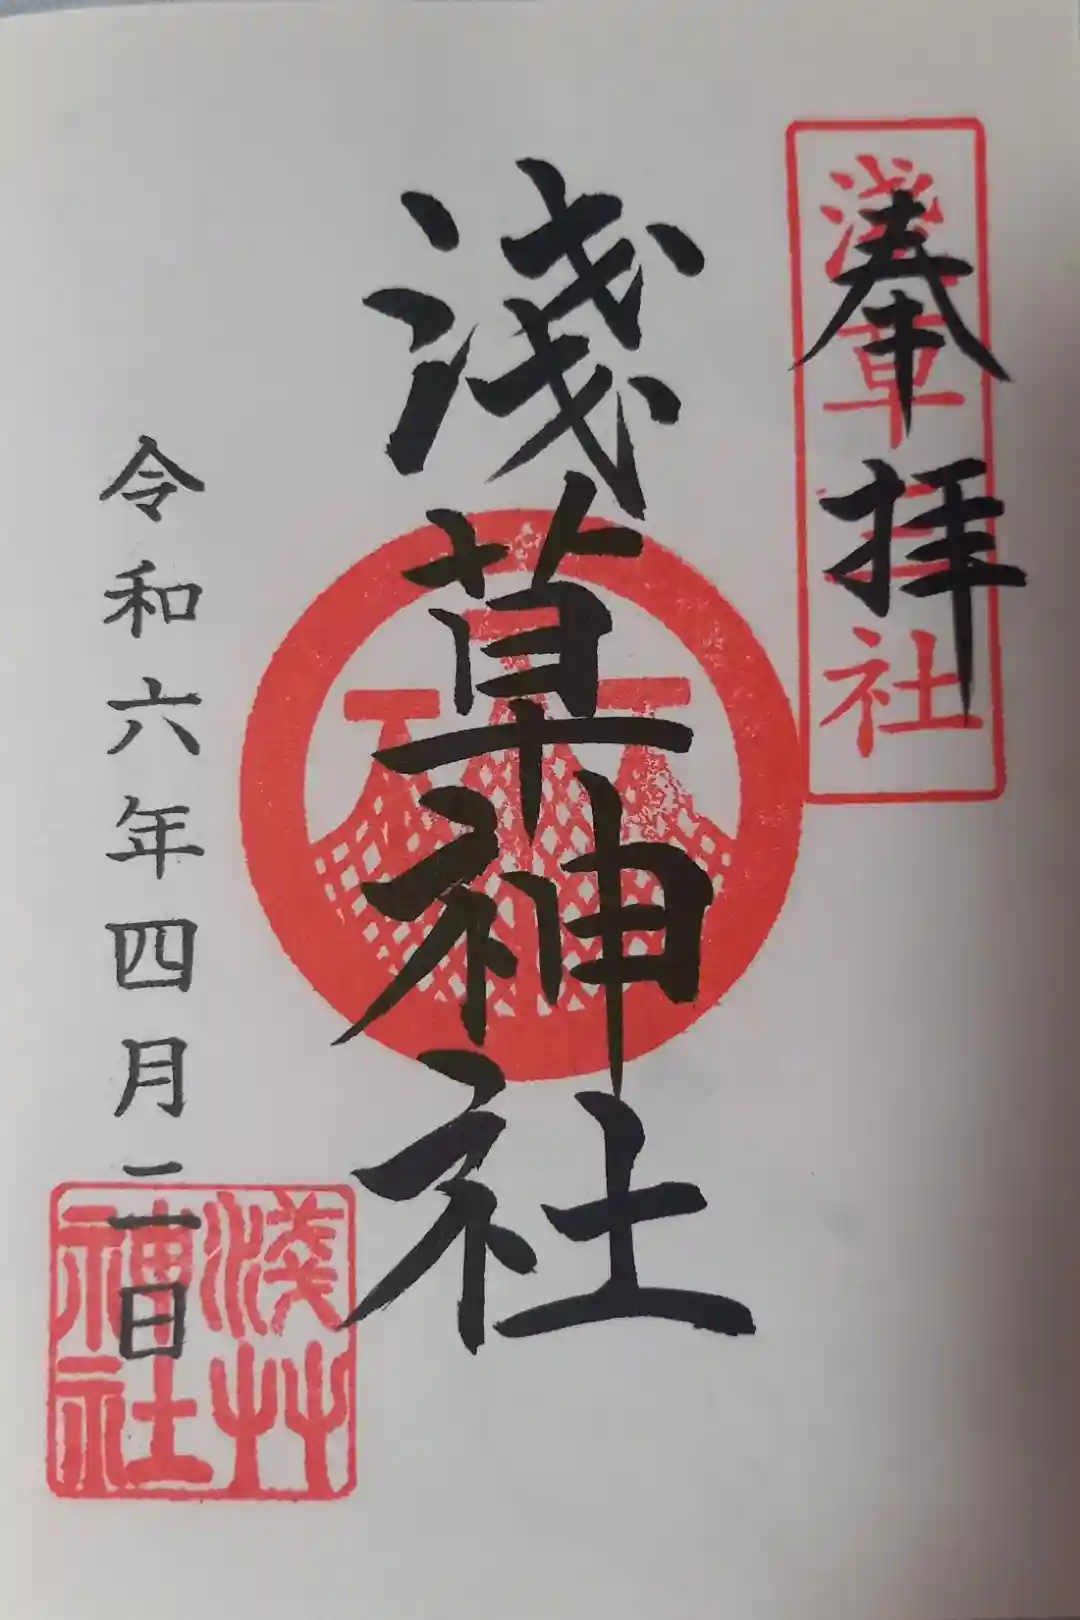 奉拝
淺草三社
淺草神社
令和六年四月二日
淺艸神社